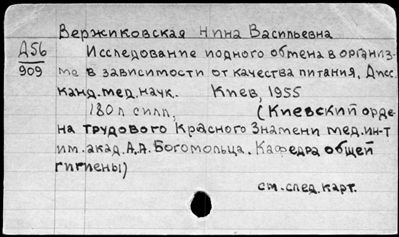 Вержиковская Нина Васильевна
Д56
909
Исследование иодного обмена в организ-
ме в зависимости от качества питания. Дисс.
канд. мед. наук. Киев, 1955
180 л силл. (Киевский орде-
на трудового Красного Знамени мед. ин-т
им. акад. А.А. Богомольца. Кафедра общей
гигиены)
см. след. карт.